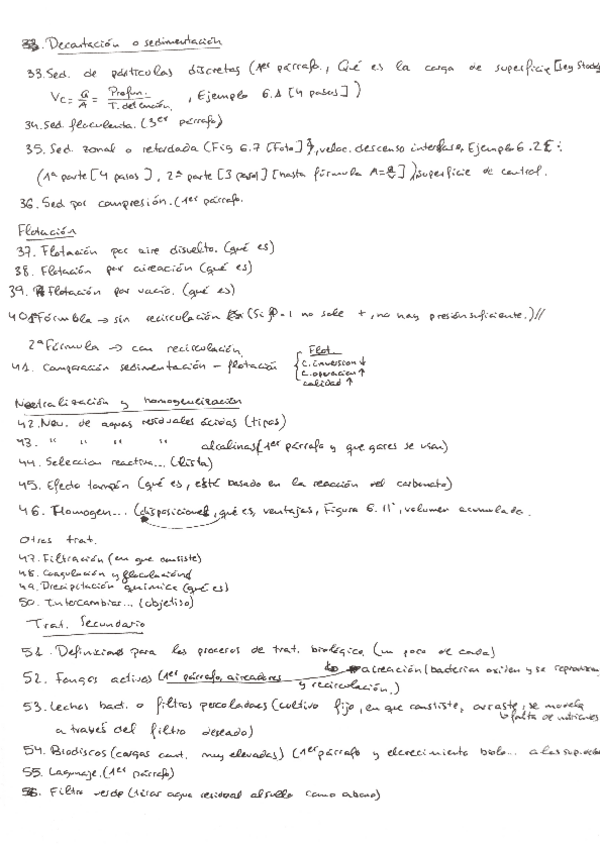 Decantación o sedimentación
33. Sed. de partículas discretas (1er párrafo., Qué es la carga de superficie [ley Stokes]
Vc = Q/A = Profun./T. detención, Ejemplo 6.1 [4 pasos])
34. Sed. floculenta. (3er párrafo)
35. Sed. zonal o retardada (Fig 6.7 [Foto]), veloc. descenso interfase, Ejemplo 6.2:
(1ª parte [4 pasos], 2ª parte [3 pasos] [hasta fórmula A=Q/V]) superficie de control.
36. Sed por compresión. (1er párrafo.
Flotación
37. Flotación por aire disuelto. (qué es)
38. Flotación por aireación (qué es)
39. Flotación por vacío. (qué es)
40. 1ª Fórmula → sin recirculación (Si -1 no sale +, no hay presión suficiente.)//
2ª Fórmula → con recirculación
41. Comparación sedimentación - flotación { Flot.
C. inversion ↓
C. operacion ↑
calidad ↑
Neutralización y homogeneización
42. Neu. de aguas residuales ácidas (tipos)
43. " " " " alcalinas (1er párrafo y que gases se usan)
44. Seleccion reactivo... (lista)
45. Efecto tampón (qué es, está basado en la reacción del carbonato)
46. Homogen... (disposiciones, qué es, ventajas, Figura 6.11, volumen acumulado.
Otros trat.
47. Filtración (en que consiste)
48. Coagulación y floculación
49. Precipitación química (qué es)
50. Intercambior... (objetivo)
Trat. Secundario
51. Definiciones para los procesos de trat. biológico (un poco de cada)
52. Fangos activos (1er párrafo, aireadores y recirculación.) aereación (bacterias oxiden y se reproduzcan
53. Lechos bact. o filtros percoladores (cultivo fijo, en que consiste, arrastre, se mueva
falta de nutrientes
a través del filtro deseado)
54. Biodiscos (cargas cont. muy elevadas) (1er párrafo y el crecimiento biolo... a las sup.
55. Lagunaje. (1er párrafo)
56. Filtro verde (tirar agua residual al suelo como abono)